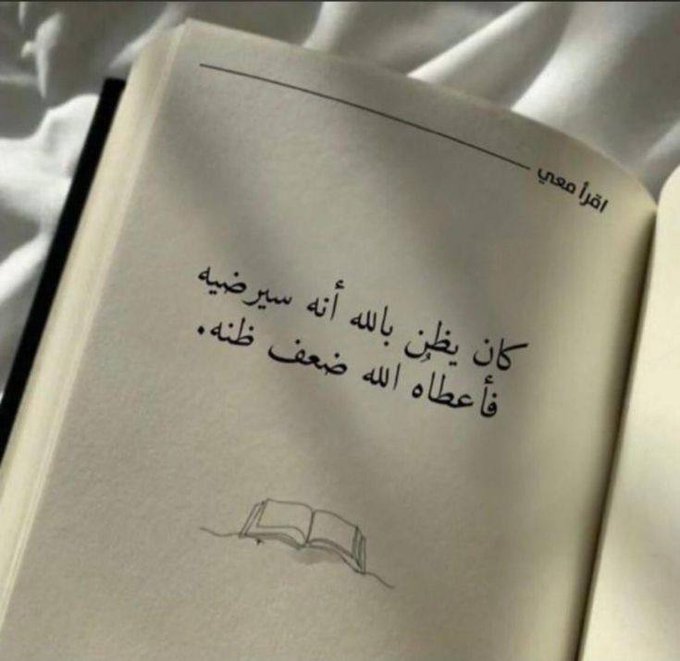 اقرأ معي
كان يظن بالله أنه سيرضيه
فأعطاه الله ضعف ظنه.